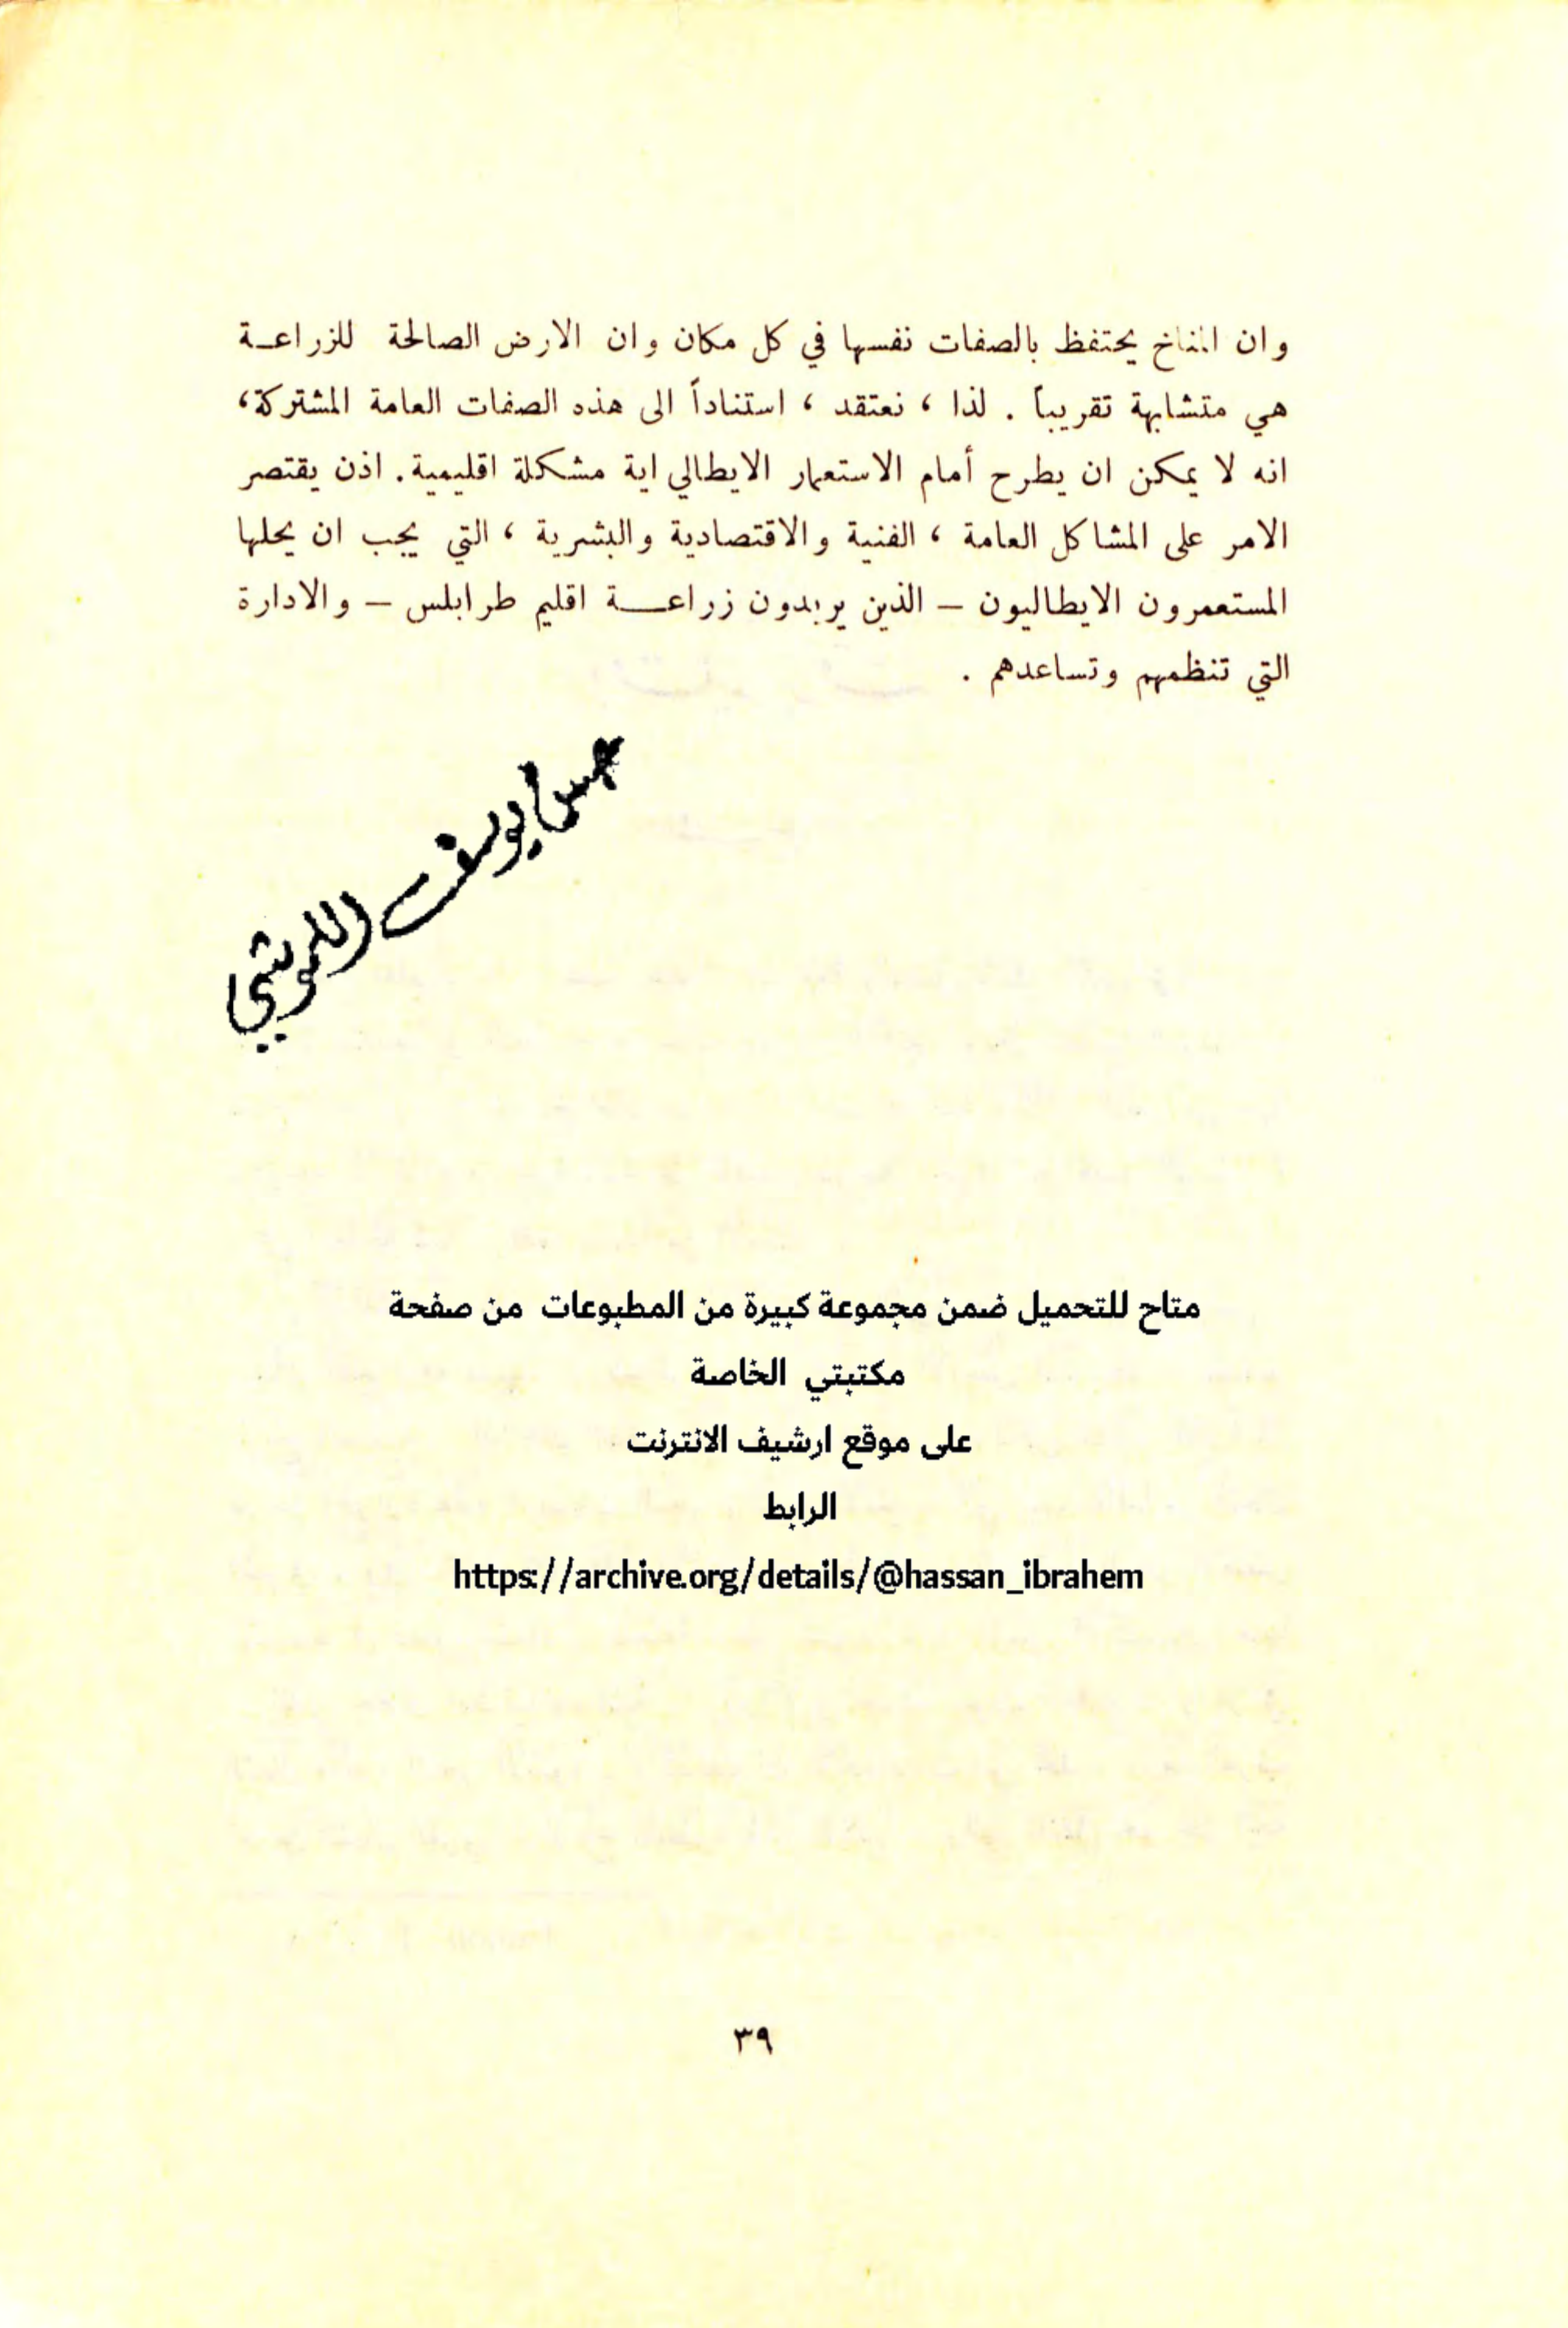 وان المناخ يحتفظ بالصفات نفسها في كل مكان وان الارض الصالحة للزراعـة
هي متشابهة تقريباً . لذا ، نعتقد ، استناداً الى هذه الصفات العامة المشتركة،
انه لا يمكن ان يطرح أمام الاستعمار الايطالي اية مشكلة اقليمية. اذن يقتصر
الامر على المشاكل العامة ، الفنية والاقتصادية والبشرية ، التي يجب ان يحلها
المستعمرون الايطاليون – الذين يريدون زراعــة اقليم طرابلس – والادارة
التي تنظمهم وتساعدهم .
يوسف
متاح للتحميل ضمن مجموعة كبيرة من المطبوعات من صفحة
مكتبتي الخاصة
على موقع ارشيف الانترنت
الرابط
https://archive.org/details/@hassan_ibrahem
٣٩